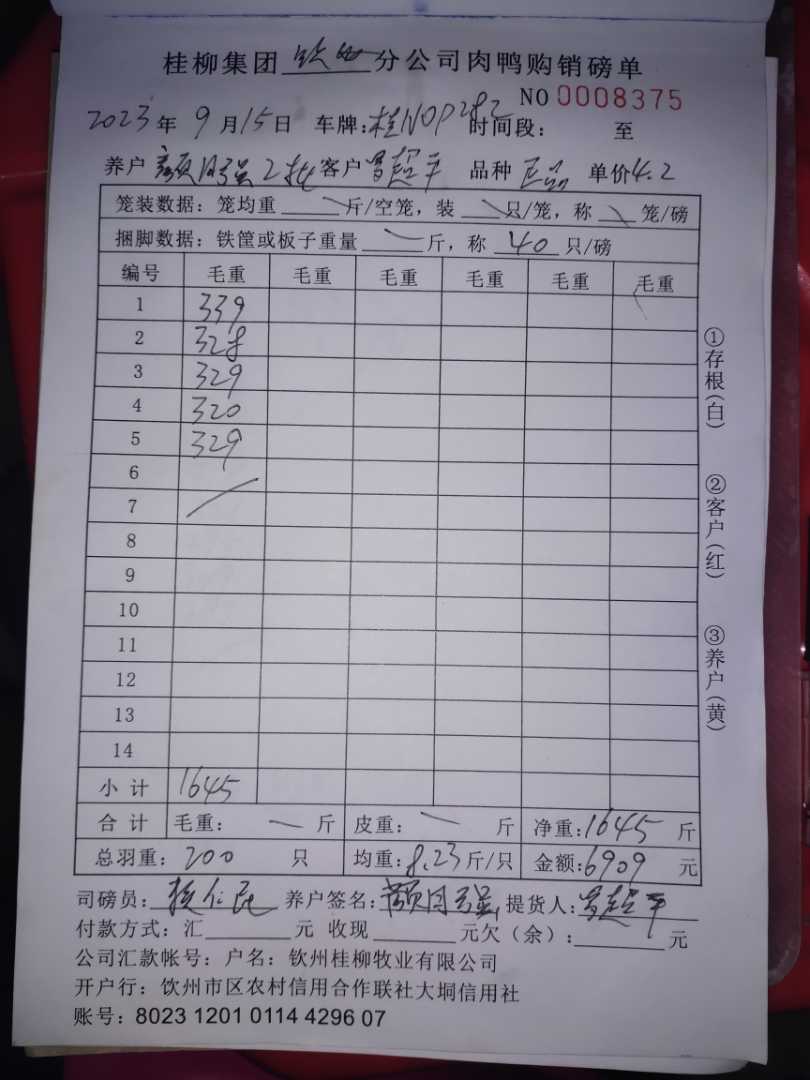 桂柳集团 钦州 分公司肉鸭购销磅单
NO 0008375
2023年 9月15日 车牌:桂N0P282 时间段: 至
养户 颜月强2批 客户 曾超平 品种 单价4.2
笼装数据:笼均重 斤/空笼,装 只/笼,称 笼/磅
捆脚数据:铁筐或板子重量 斤,称 40 只/磅
编号 毛重 毛重 毛重 毛重 毛重 毛重
1 339
2 328
3 329
4 320
5 329
6
7
8
9
10
11
12
13
14
小计 1645
合计 毛重: 斤 皮重: 斤 净重:1645 斤
总羽重:200 只 均重:8.23斤/只 金额:6909 元
司磅员: 养户签名:颜月强 提货人:曾超平
付款方式:汇 元 收现 元欠(余): 元
公司汇款帐号:户名:钦州桂柳牧业有限公司
开户行:饮州市区农村信用合作联社大垌信用社
账号:8023 1201 0114 4296 07
①存根(白)
②客户(红)
③养户(黄)